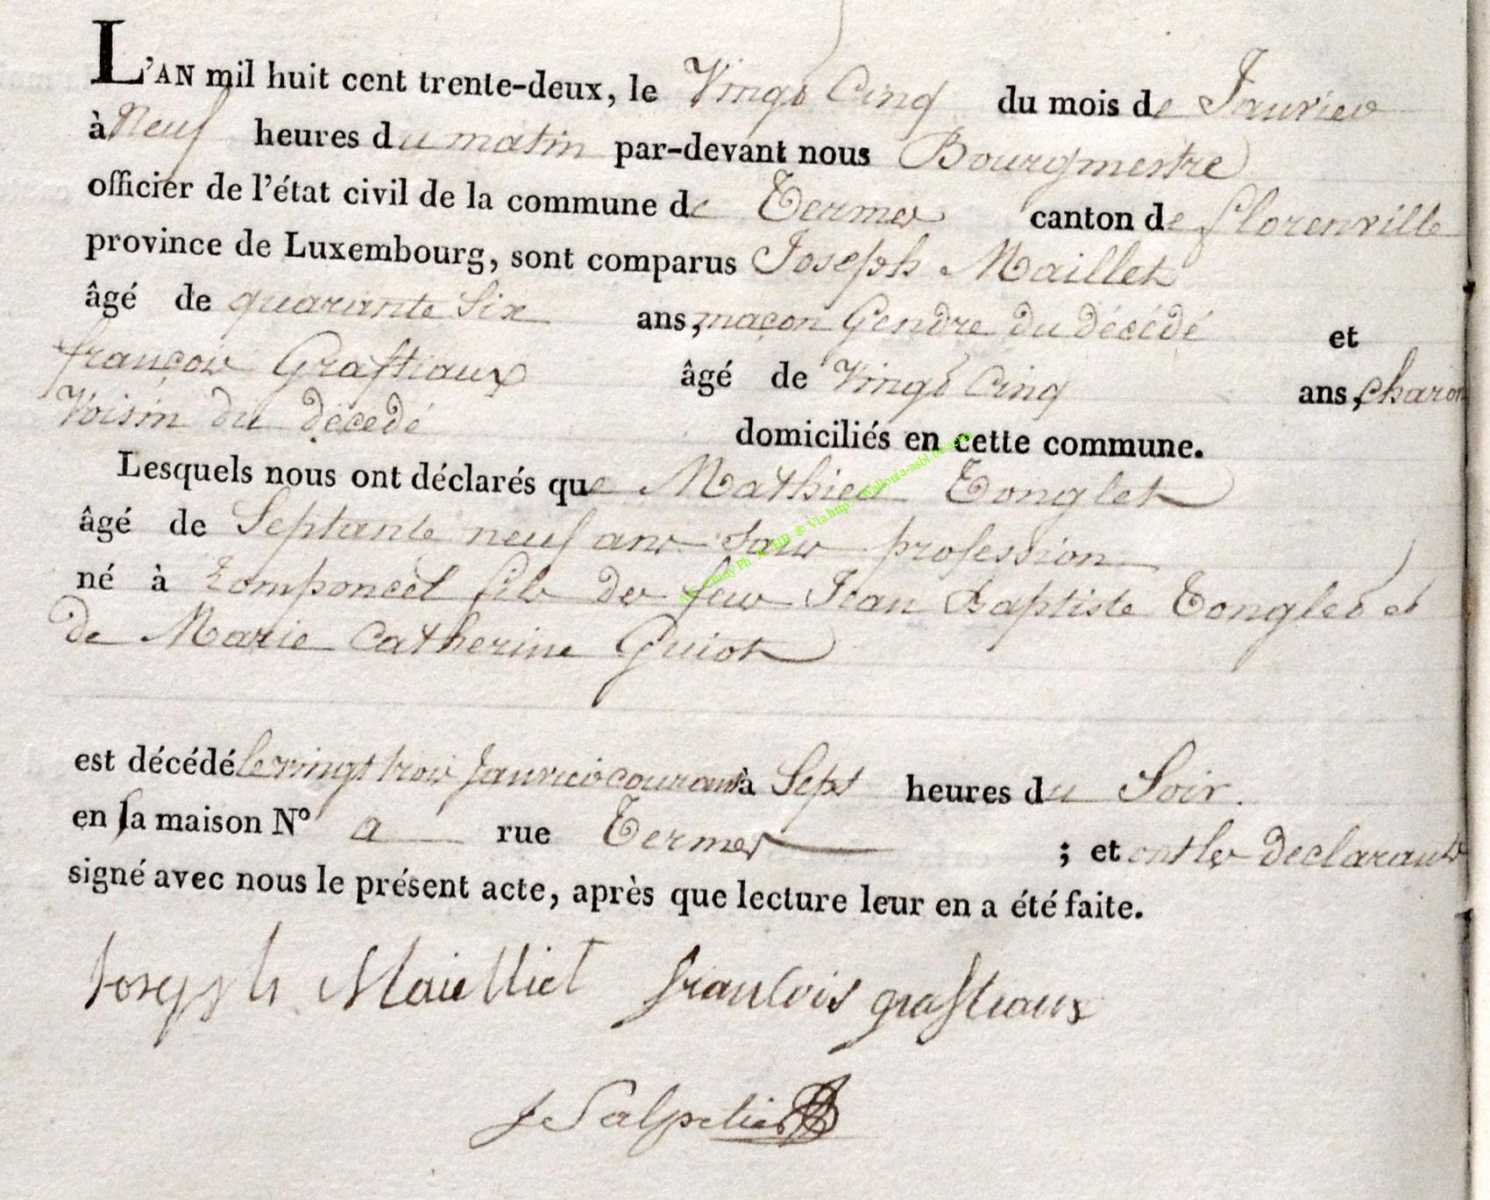 L'AN mil huit cent trente-deux, le Vingt Cinq du mois de Janvier
à Neuf heures du matin par-devant nous Bourgmestre
officier de l'état civil de la commune de Termes canton de florenville
province de Luxembourg, sont comparus Joseph Maillet
âgé de quarante Six ans, maçon Gendre du décédé et
françois Grastiaux âgé de Vingt Cinq ans, charon
Voisin du décedé domiciliés en cette commune.
Lesquels nous ont déclarés que Mathieu Tonglet
âgé de Septante neuf ans sans profession
né à fils de feu Jean Baptiste Tonglet et
de Marie Catherine Guiot
est décédé le vingt trois Janvier courant à Sept heures du Soir.
en sa maison N° a rue Termes ; et ont les declarants
signé avec nous le présent acte, après que lecture leur en a été faite.
Joseph Mailliet francois grastiaux
J Salpetier